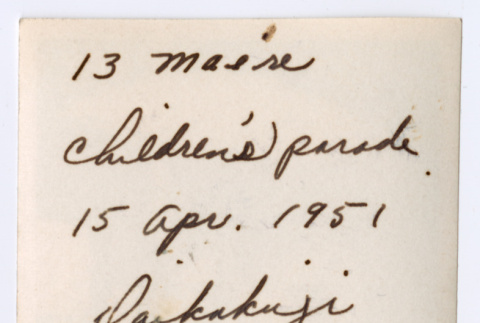 13 Maeire
children's parade.
15 Apr. 1951
Daikakuji